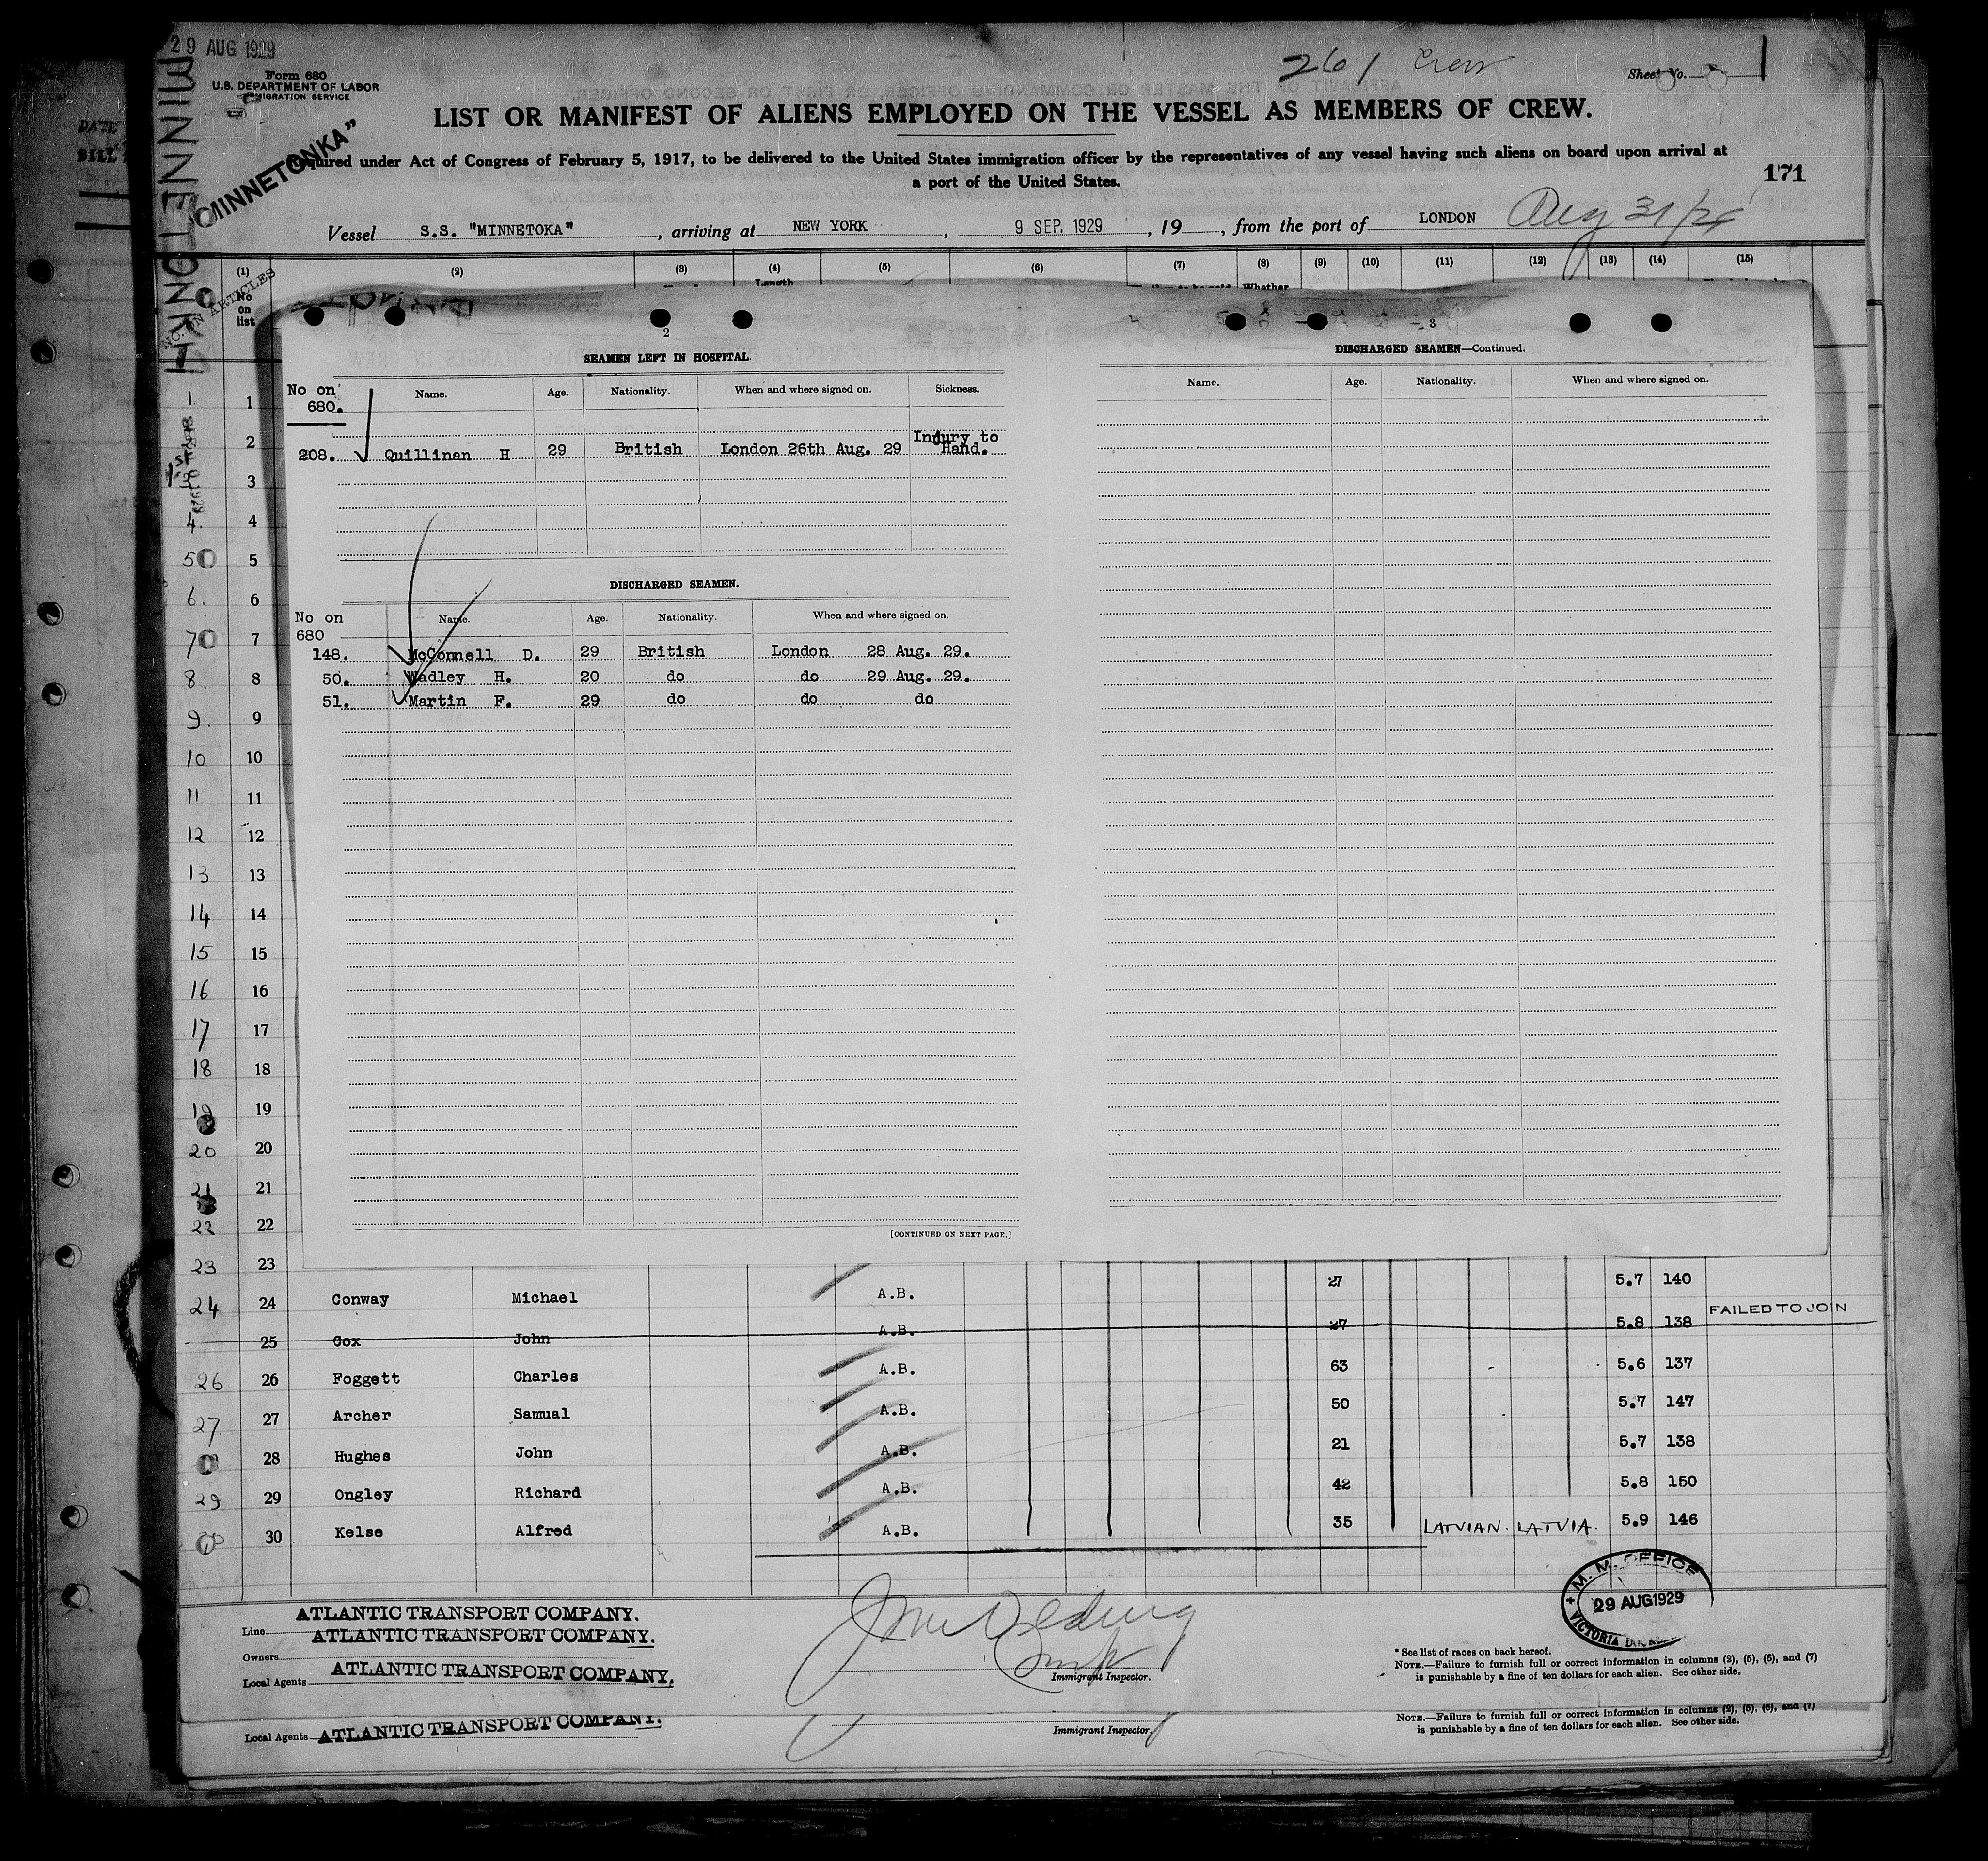 29 AUG 1929
Form 680
U.S. DEPARTMENT OF LABOR
IMMIGRATION SERVICE
261 Crew
Sheet No. 1
LIST OR MANIFEST OF ALIENS EMPLOYED ON THE VESSEL AS MEMBERS OF CREW.
MINNETONKA
"MINNETONKA"
Required under Act of Congress of February 5, 1917, to be delivered to the United States immigration officer by the representatives of any vessel having such aliens on board upon arrival at
a port of the United States.
171
Vessel S.S. "MINNETOKA", arriving at NEW YORK, 9 SEP. 1929, 19, from the port of LONDON Aug 31/26
(1) (2) (3) (4) (5) (6) (7) (8) (9) (10) (11) (12) (13) (14) (15)
NO. ON ARTICLES
No on list
Length
Whether
2
SEAMEN LEFT IN HOSPITAL.
No on 680. Name. Age. Nationality. When and where signed on. Sickness.
208. Quillinan H 29 British London 26th Aug. 29 Injury to Hand.
DISCHARGED SEAMEN.
No on 680 Name. Age. Nationality. When and where signed on.
148. McConnell D. 29 British London 28 Aug. 29.
50. Wadley H. 20 do do 29 Aug. 29.
51. Martin F. 29 do do do
[CONTINUED ON NEXT PAGE.]
3
DISCHARGED SEAMEN—Continued.
Name. Age. Nationality. When and where signed on.
1
2
3
4. 4
5 5
6. 6
7 7
8 8
9. 9
10 10
11 11
12 12
13 13
14 14
15 15
16 16
17 17
18 18
19 19
20 20
21 21
22 22
23 23
27 5.7 140
24 24 Conway Michael A.B.
25 Cox John A.B. 27 5.8 138 FAILED TO JOIN
26 26 Foggett Charles A.B. 63 5.6 137
27 27 Archer Samual A.B. 50 5.7 147
28 Hughes John A.B. 21 5.7 138
29 29 Ongley Richard A.B. 42 5.8 150
30 Kelse Alfred A.B. 35 LATVIAN. LATVIA. 5.9 146
Line ATLANTIC TRANSPORT COMPANY.
Owners ATLANTIC TRANSPORT COMPANY.
Local Agents ATLANTIC TRANSPORT COMPANY.
Immigrant Inspector.
M. M. OFFICE
29 AUG 1929
VICTORIA
* See list of races on back hereof.
NOTE.—Failure to furnish full or correct information in columns (2), (5), (6), and (7)
is punishable by a fine of ten dollars for each alien. See other side.
Local Agents ATLANTIC TRANSPORT COMPANY.
Immigrant Inspector.
NOTE.—Failure to furnish full or correct information in columns (2), (5), (6), and (7)
is punishable by a fine of ten dollars for each alien. See other side.